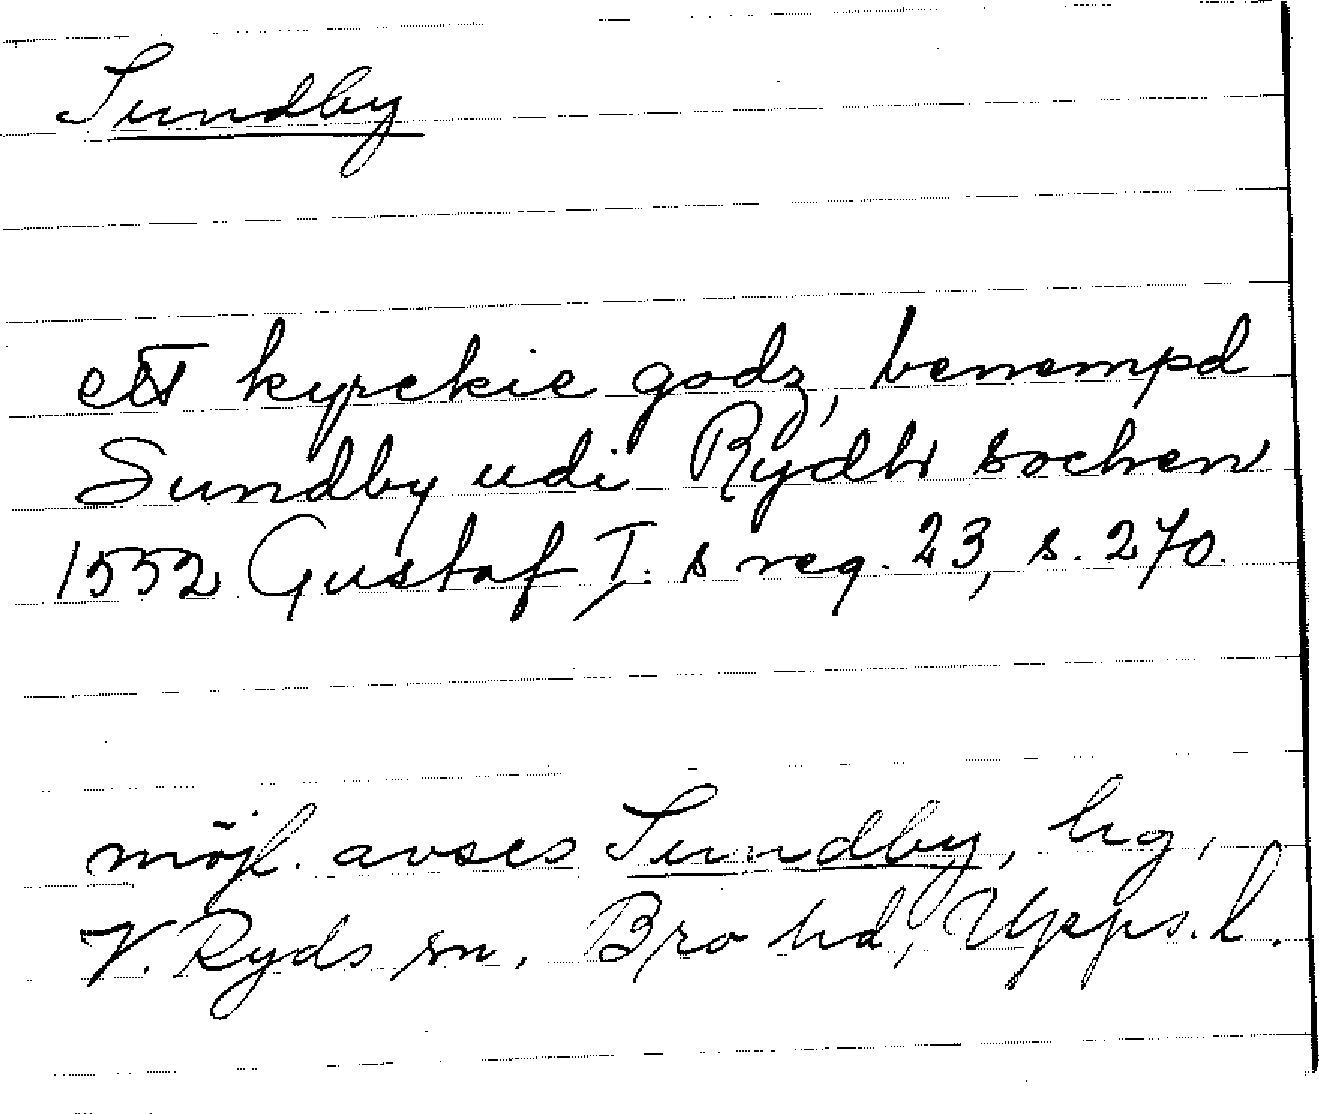 Sundby
ett kyrckie godz, benempd
Sundby udi Rydh sochen
1552 Gustaf I. s reg. 23, s. 270.
möjl. avses Sundby, hg,
V. Ryds sn, Bro hd, Upps. l.